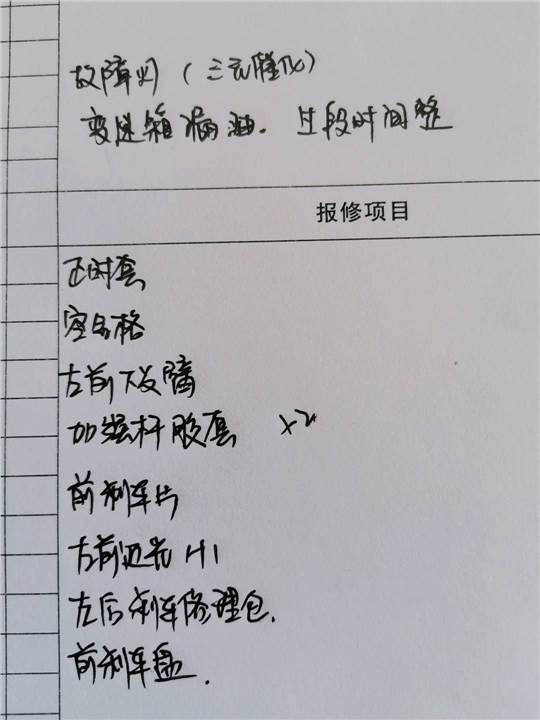 故障灯（三元催化）
变速箱漏油. 过段时间整
报修项目
正时套
空气格
左前下支臂
加强杆胶套 ×2
前刹车片
左前近光 H1
左后刹车修理包.
前刹车盘.